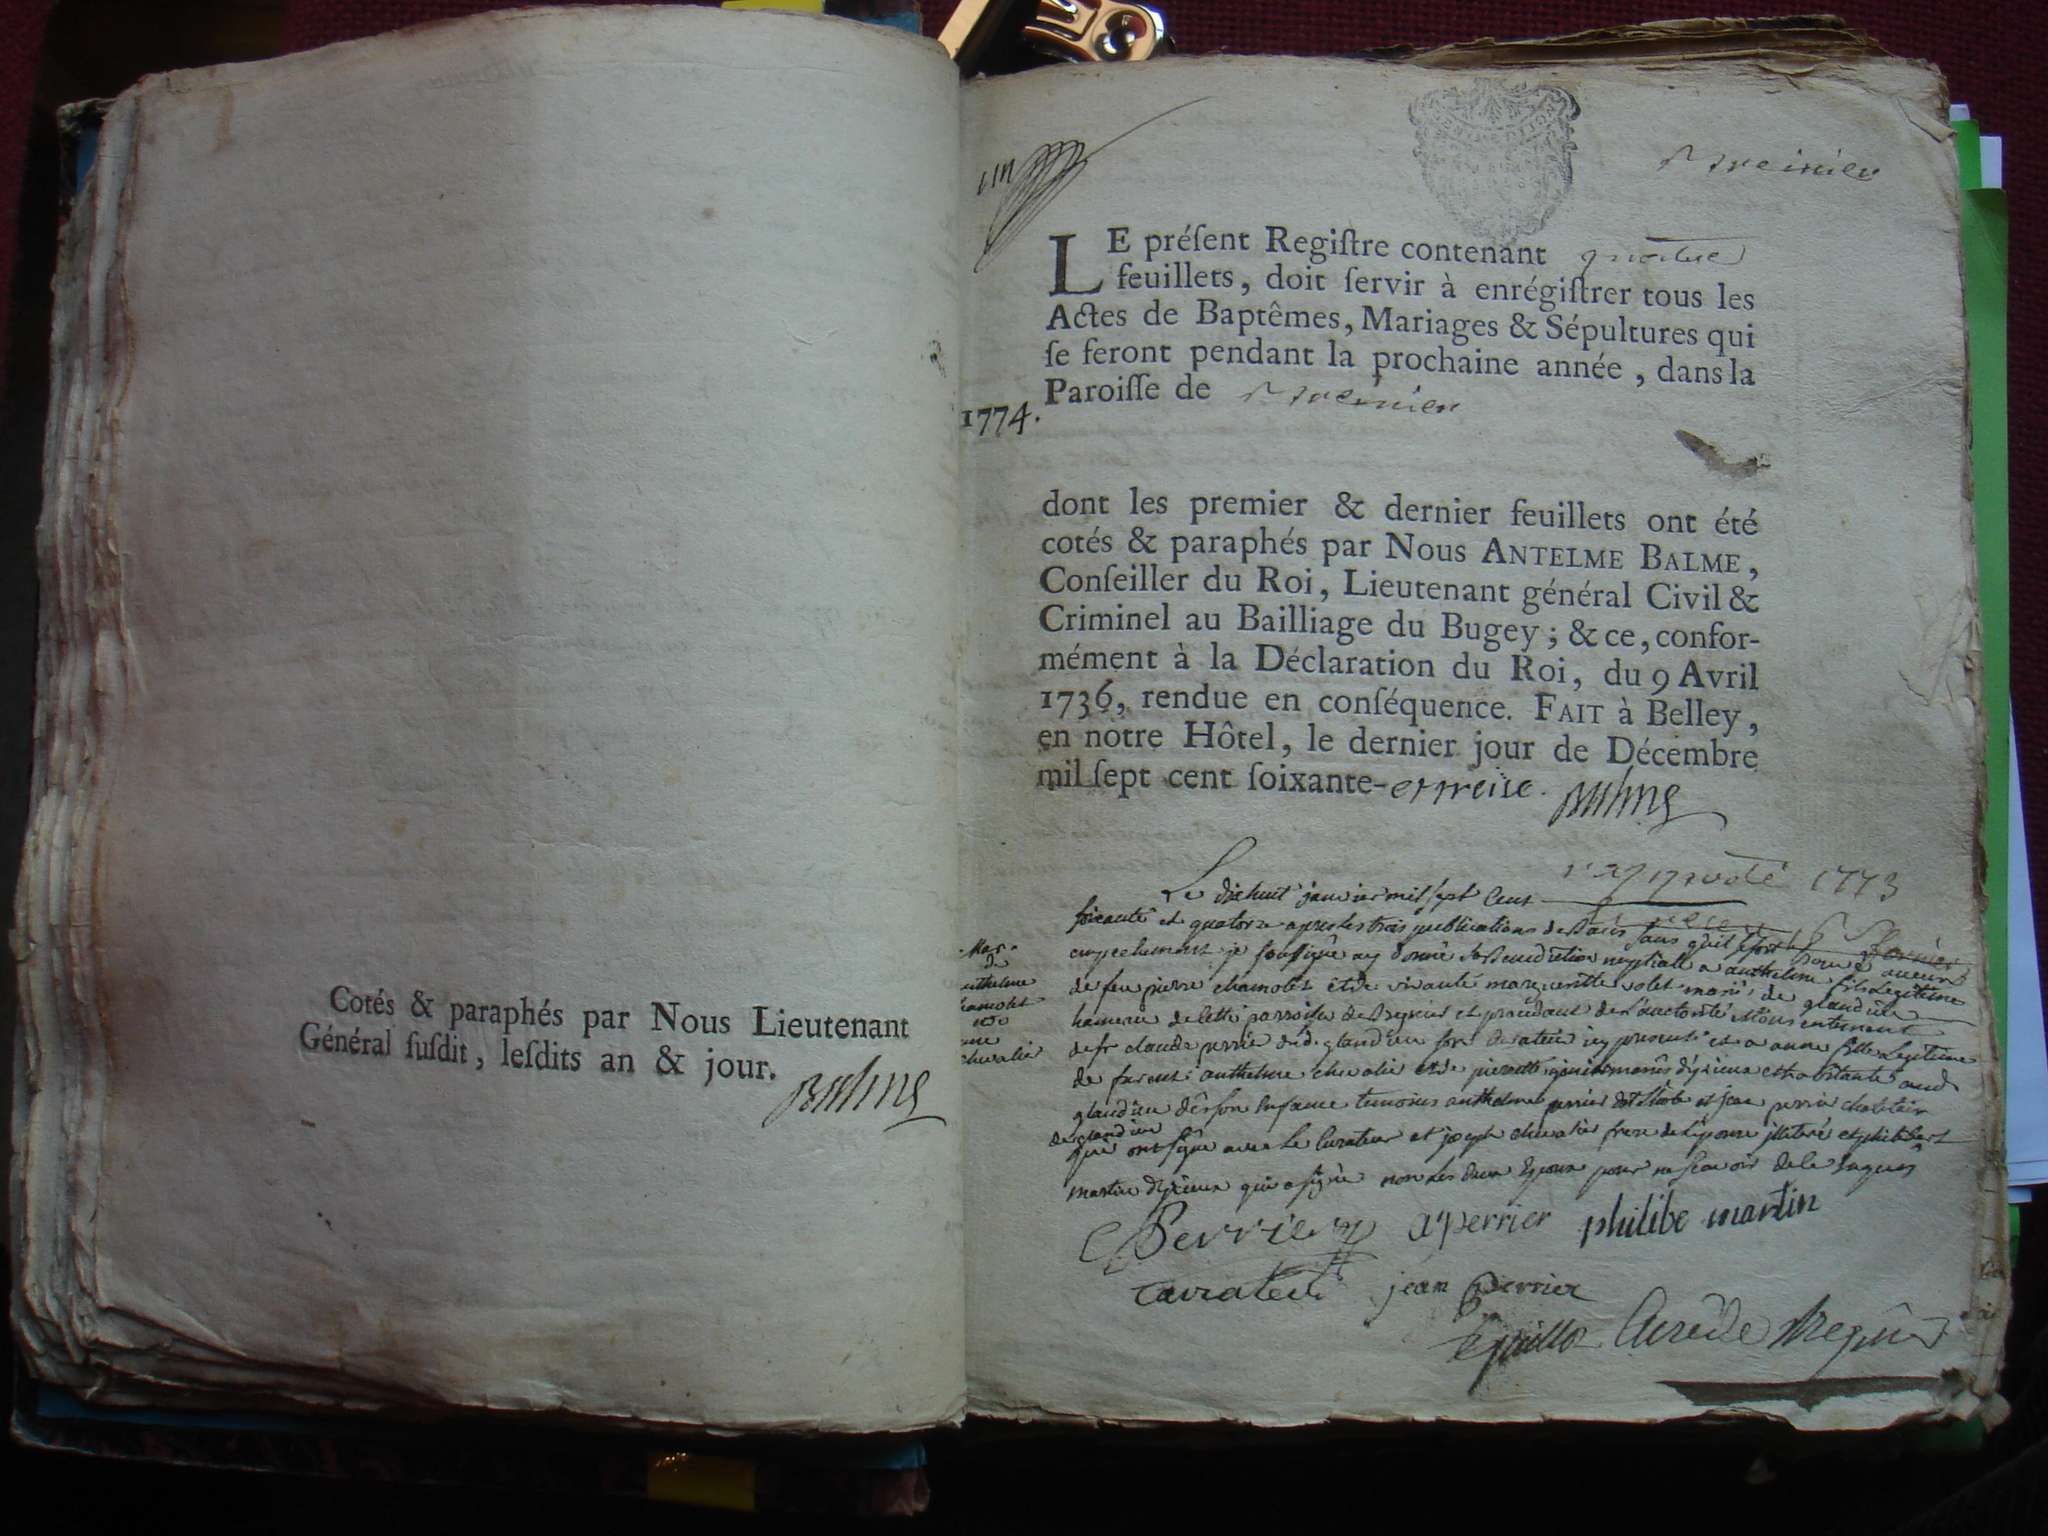 Cotés & paraphés par Nous Lieutenant
Général ſuſdit, leſdits an & jour.
Balme
LE préſent Regiſtre contenant quatre
feuillets, doit ſervir à enrégiſtrer tous les
Actes de Baptêmes, Mariages & Sépultures qui
ſe feront pendant la prochaine année, dans la
Paroiſſe de
1774.
dont les premier & dernier feuillets ont été
cotés & paraphés par Nous ANTELME BALME,
Conſeiller du Roi, Lieutenant général Civil &
Criminel au Bailliage du Bugey ; & ce, confor-
mément à la Déclaration du Roi, du 9 Avril
1736, rendue en conſéquence. FAIT à Belley,
en notre Hôtel, le dernier jour de Décembre
mil ſept cent ſoixante-et treize. Balme
1773
Le dixhuit janvier mil sept cent
soixante et quatorze apres les trois publications de
empechement je soussigné ay donné la benediction nuptiale a anthelme fils legitime
de feu pierre chamolet et de vivante margueritte volet mariés de glandieu
hameau de cette parroisse de et procedant de l'autorité
de claude perrier de glandieu son curateur icy present et a anne fille legitime
de anthelme chevalier et de pierrette mariés et habitante aud
glandieu dès son enfance temoins anthelme perrier et jean perrier
de glandieu
qui ont signé avec le curateur et joseph chevalier frere de l'epouse illiteré et philibert
martin qui a signé non les deux epoux pour ne scavoir de ce enquis
Mar.
de
anthelme
chamolet
anne
chevalier
C Perrier a perrier philibe martin
curateur jean perrier
curé de